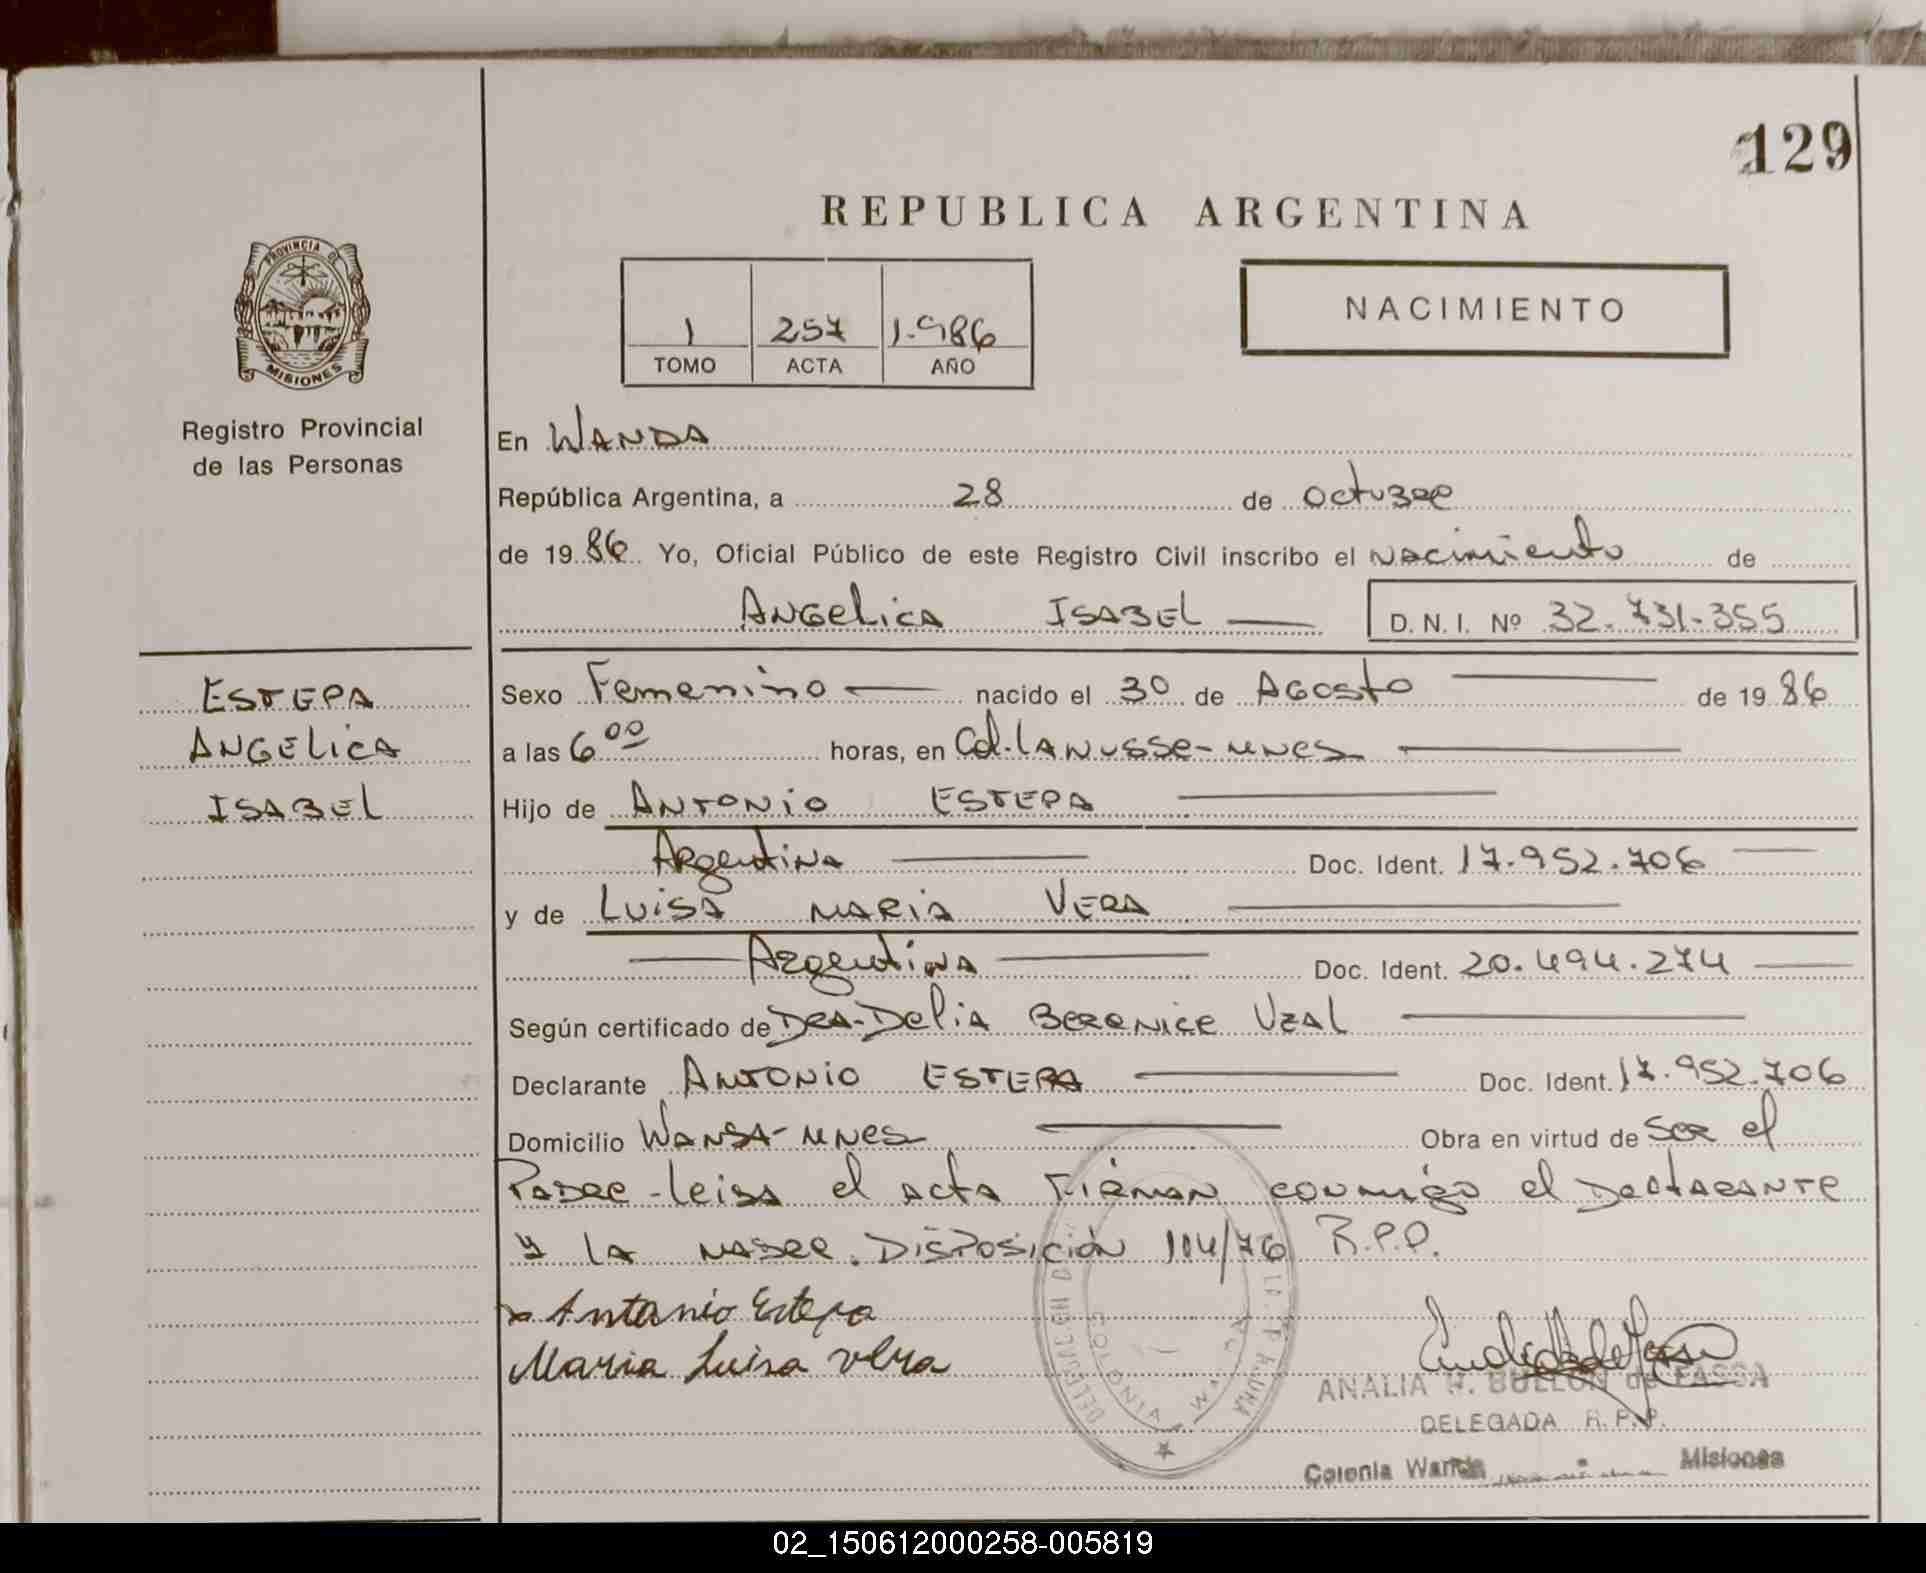 129
REPUBLICA ARGENTINA
PROVINCIA DE
MISIONES
Registro Provincial
de las Personas
1 257 1.986
TOMO ACTA AÑO
NACIMIENTO
En WANDA
República Argentina, a 28 de octubre
de 1986 Yo, Oficial Público de este Registro Civil inscribo el Nacimiento de
ANGELICA ISABEL D. N. I. Nº 32.731.355
ESTEPA
ANGELICA
ISABEL
Sexo Femenino nacido el 30 de Agosto de 1986
a las 6 00 horas, en Col. LANUSSE - MNES
Hijo de ANTONIO ESTEPA
Argentina Doc. Ident. 17.952.706
y de LUISA MARIA VERA
Argentina Doc. Ident. 20.494.274
Según certificado de DRA. Delia BERENICE UZAL
Declarante ANTONIO ESTEPA Doc. Ident. 17.952.706
Domicilio WANDA - MNES Obra en virtud de SER el
PADRE - leida el acta FIRMAN conmigo el Declarante
y LA MADRE. DISPOSICIÓN 114/76 R.P.P.
Antonio Estepa
Maria Luisa Vera
ANALIA H. BULLON de FASSA
DELEGADA R.P.P.
Colonia Wanda Misiones
COLONIA WANDA
02_150612000258-005819